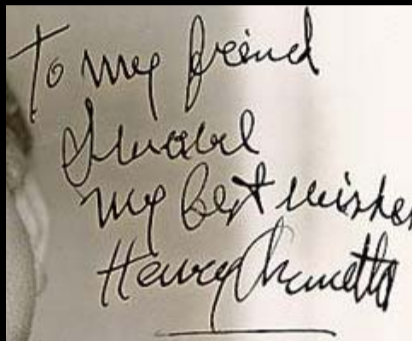 To my friend
my best wishes
Henry Armetta